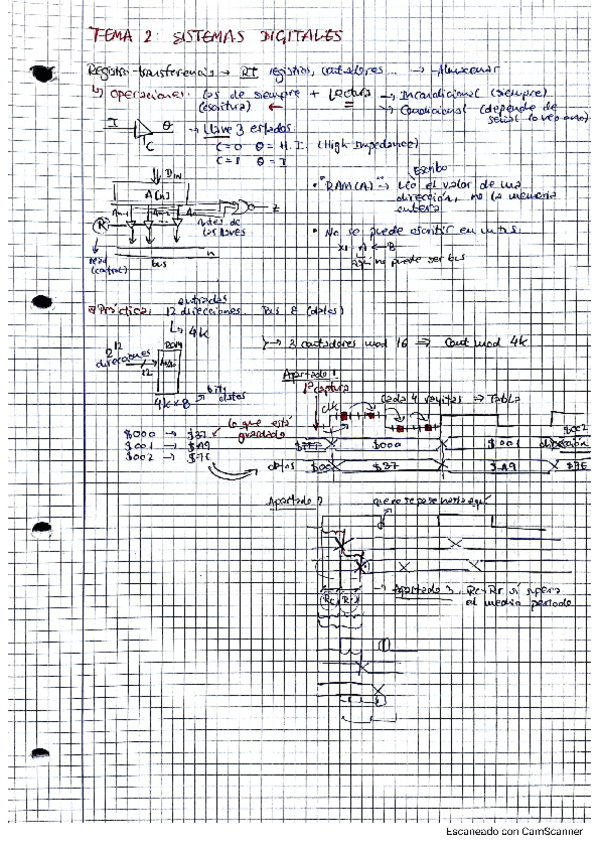 TEMA 2: SISTEMAS DIGITALES
Registro-transferencia → RT registros, contadores... → Almacenar
↳ operaciones: los de siempre + Lectura → Incondicional (siempre)
(escritura) ← → Condicional (depende de
I θ → Llave 3 estados
C C=0 θ=H.I. (High Impedance)
C=1 θ=I
DIN
Escribo
A[n] • "RAM(A)" → Leo el valor de una
dirección, no la memoria
entera
z
R
las llaves • No se puede escribir en
A ← B
read
(control) bus n
no puede ser bus
Práctica: entradas
12 direcciones Bus 8 (datos)
↳ 4k
3 contadores mod 16 ⇒ Cont mod 4k
2^12
direcciones
12
ROM
4k×8 → bits
datos
Apartado 1
1ª captura
clk cada 4 rayitas ⇒ Tabla
Lo que está
guardado
$000 → $37
$001 → $A9
$002 → $7E
$000 $001 $002
dirección
datos $37 $A9 $7E
Apartado 2 que no se pase hasta aquí
→ Apartado 3, si supera
el medio periodo
Escaneado con CamScanner